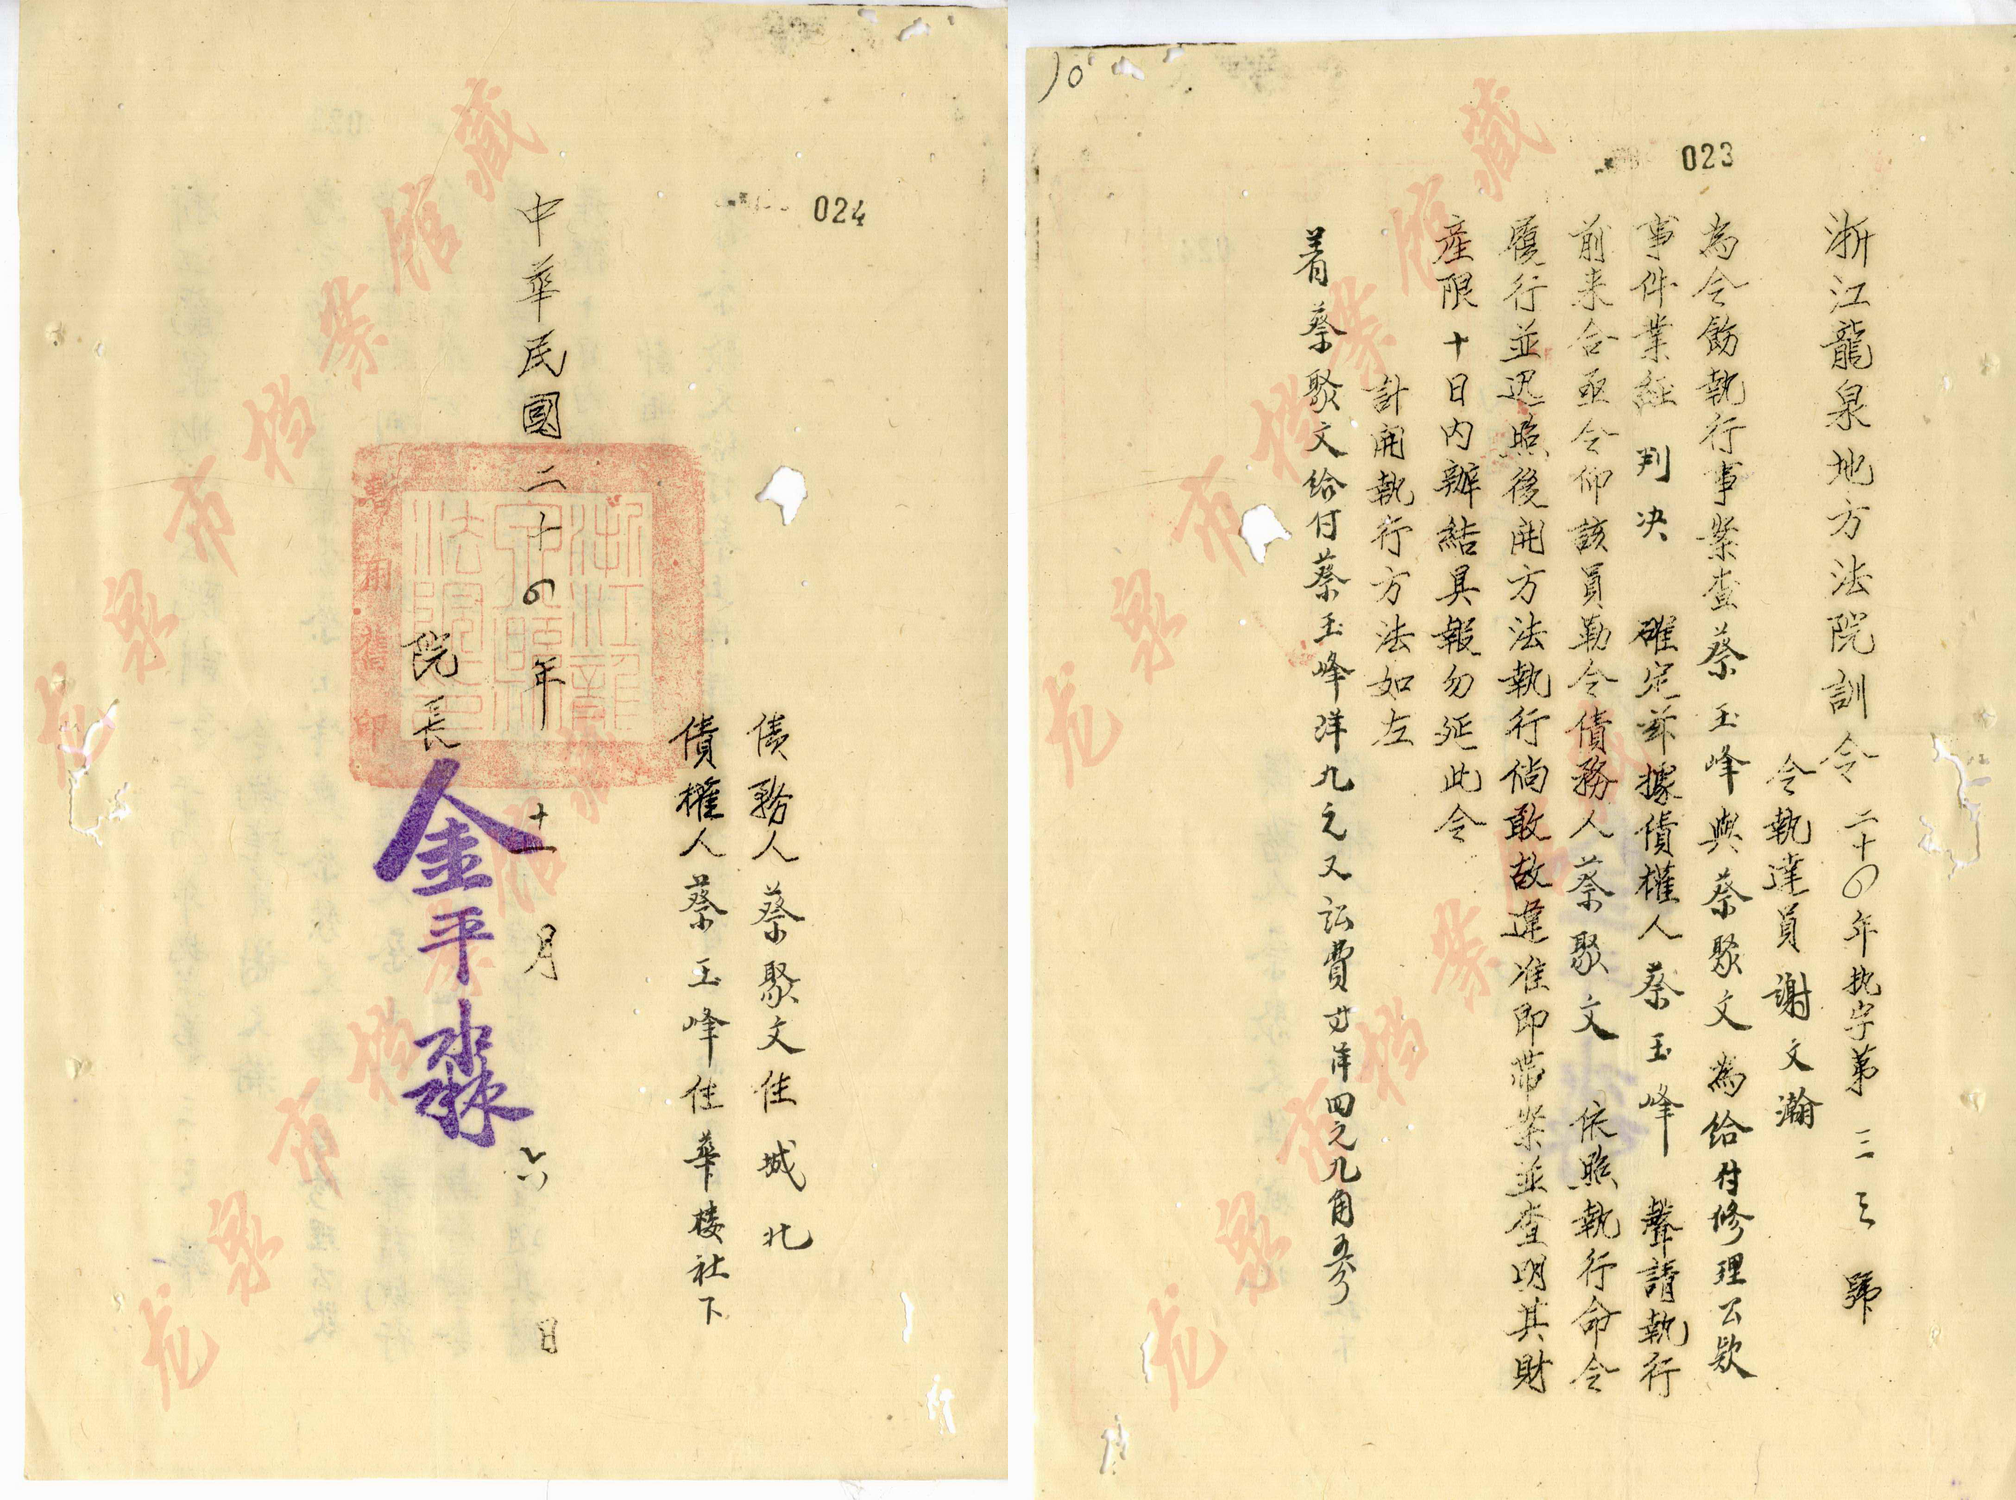 023
浙江龍泉地方法院訓令 二十四年执字第三三號
令執達員謝文瀚
為令飭執行事案查蔡玉峰與蔡聚文為給付修理公欵
事件業經判决確定玆據債權人蔡玉峰聲請執行
前来合亟令仰該員勒令債務人蔡聚文依照執行命令
履行並迅照後開方法執行倘敢故違准即帶案並查明其財
產限十日内辦結具報勿延此令
計開執行方法如左
着蔡聚文給付蔡玉峰洋九元又訟費廿洋四元九角五分
024
債務人蔡聚文住城北
債權人蔡玉峰住華楼社下
中華民國二十四年十一月六日
院長金平淼
暫用舊印
龙泉市档案馆藏
龙泉市档案馆藏